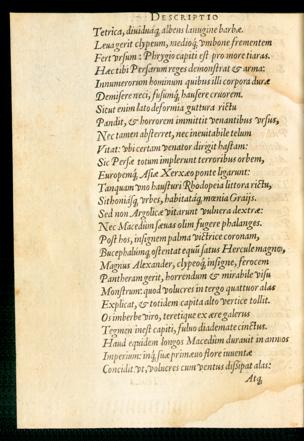 DESCRIPTIO
Tetrica, diuiduáq; albens lanugine barbæ.
Leua gerit clypeum, medióq; vmbone frementem
Fert vrsum: Phrygio capiti est pro more tiaras.
Hæc tibi Persarum reges demonstrat & arma:
Innumerorum hominum quibus illi corpora duræ
Demisere neci, fusumq; hausere cruorem.
Sicut enim lato deformia guttura rictu
Pandit, & horrorem immittit venantibus vrsus,
Nec tamen absterret, nec ineuitabile telum
Vitat: vbi certam venator dirigit hastam:
Sic Persæ totum implerunt terroribus orbem,
Europemq; Asiæ Xerxæo ponte ligarunt:
Tanquam vno hausturi Rhodopeia littora rictu,
Sithoniásq; vrbes, habitatáq; mœnia Graijs.
Sed non Argolicæ vitarunt vulnera dextræ:
Nec Macedûm sæuas olim fugere phalanges.
Post hos, insignem palma victrice coronam,
Bucephalûmq; ostentat equû satus Hercule magno,
Magnus Alexander, clypeóq; insigne, ferocem
Pantheram gerit, horrendum & mirabile visu
Monstrum: quod volucres in tergo quattuor alas
Explicat, & totidem capita alto vertice tollit.
Os imberbe viro, teretique ex ære galerus
Tegmen inest capiti, fuluo diademate cinctus.
Haud equidem longos Macedûm durauit in annos
Imperium: inq; suæ primæuo flore iuuentæ
Concidit. vt, volucres cum ventus dissipat alas:
Atq;